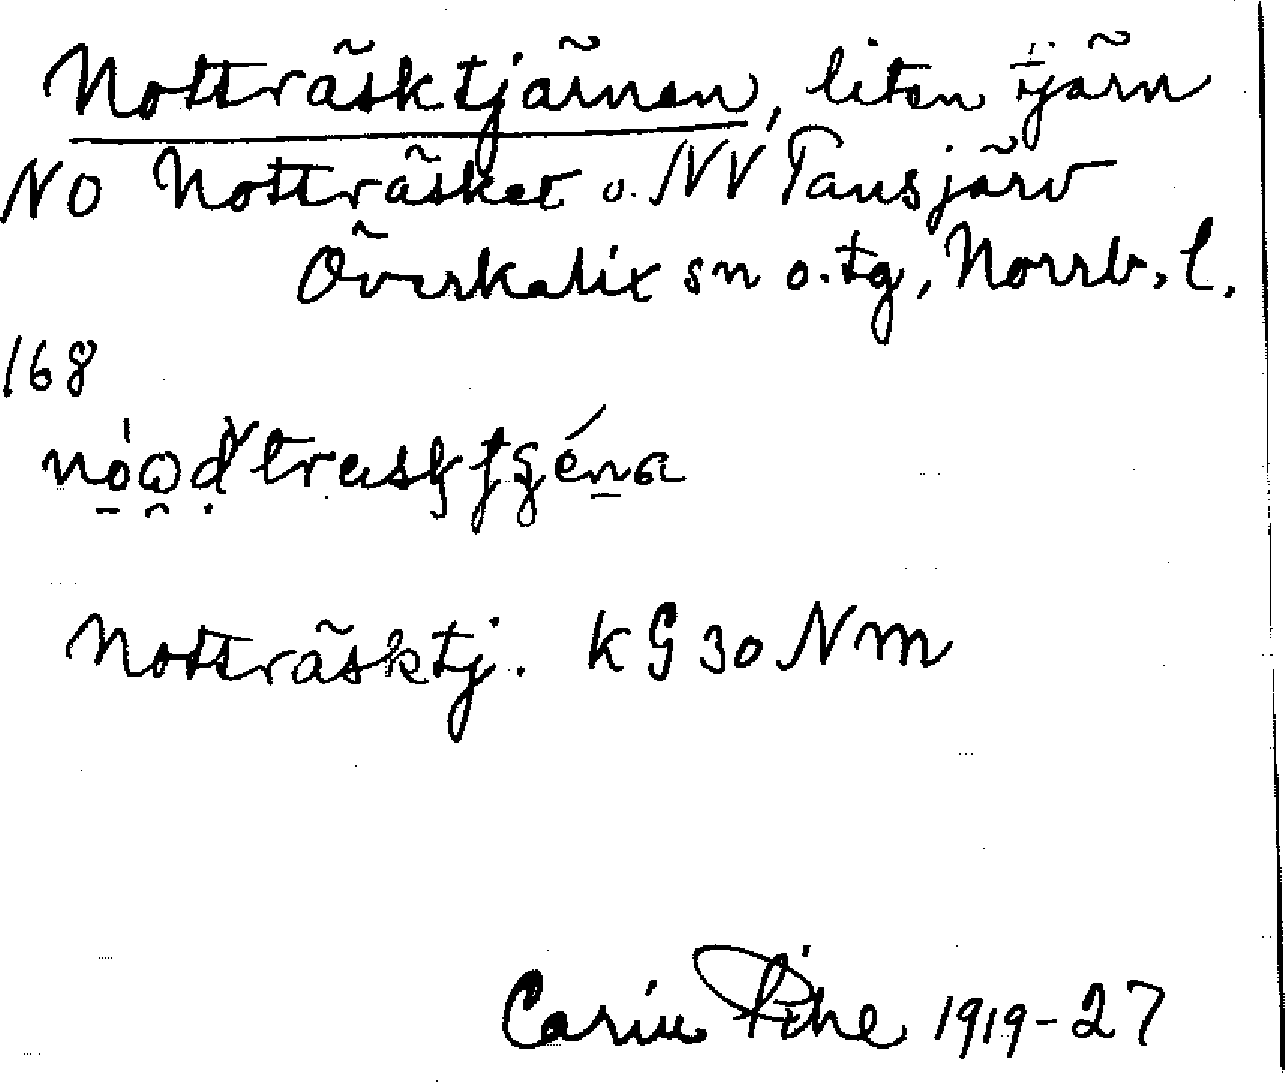 Notträsktjärnen, liten tjärn
NO Notträsket o. NV Tansjärv
Överkalix sn o. tg, Norrb. l.
168
Notträsktj. KG 30 NM
Carin Pihl 1919-27